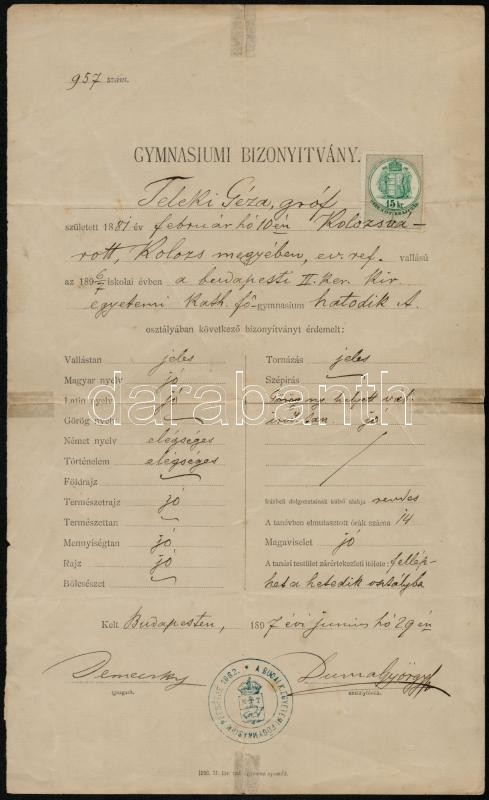 957 szám.
15 kr.
GYMNASIUMI BIZONYITVÁNY.
Teleki Géza, gróf
született 1881 év február hó 10 én Kolozsva-
rott, Kolozs megyében, ev. ref. vallású
az 1896/7 iskolai évben a budapesti II. ker. kir.
egyetemi kath. fő-gymnasium hatodik A.
osztályában következő bizonyitványt érdemelt:
Vallástan jeles
Magyar nyelv jó
Latin nyelv jó
Görög nyelv
Német nyelv elégséges
Történelem elégséges
Földrajz
Természetrajz jó
Természettan
Mennyiségtan jó
Rajz jó
Bölcsészet
Tornázás jeles
Szépírás
Görög ny. helyett
jó
Írásbeli dolgozatainak külső alakja rendes
A tanévben elmulasztott órák száma 14
Magaviselet jó
A tanári testület zárértekezleti itélete: fellép-
het a hetedik osztályba
Kelt Budapesten, 1897 évi junius hó 29 én
Demecsky Duma György
igazgató. osztályfőnök.
darabanth